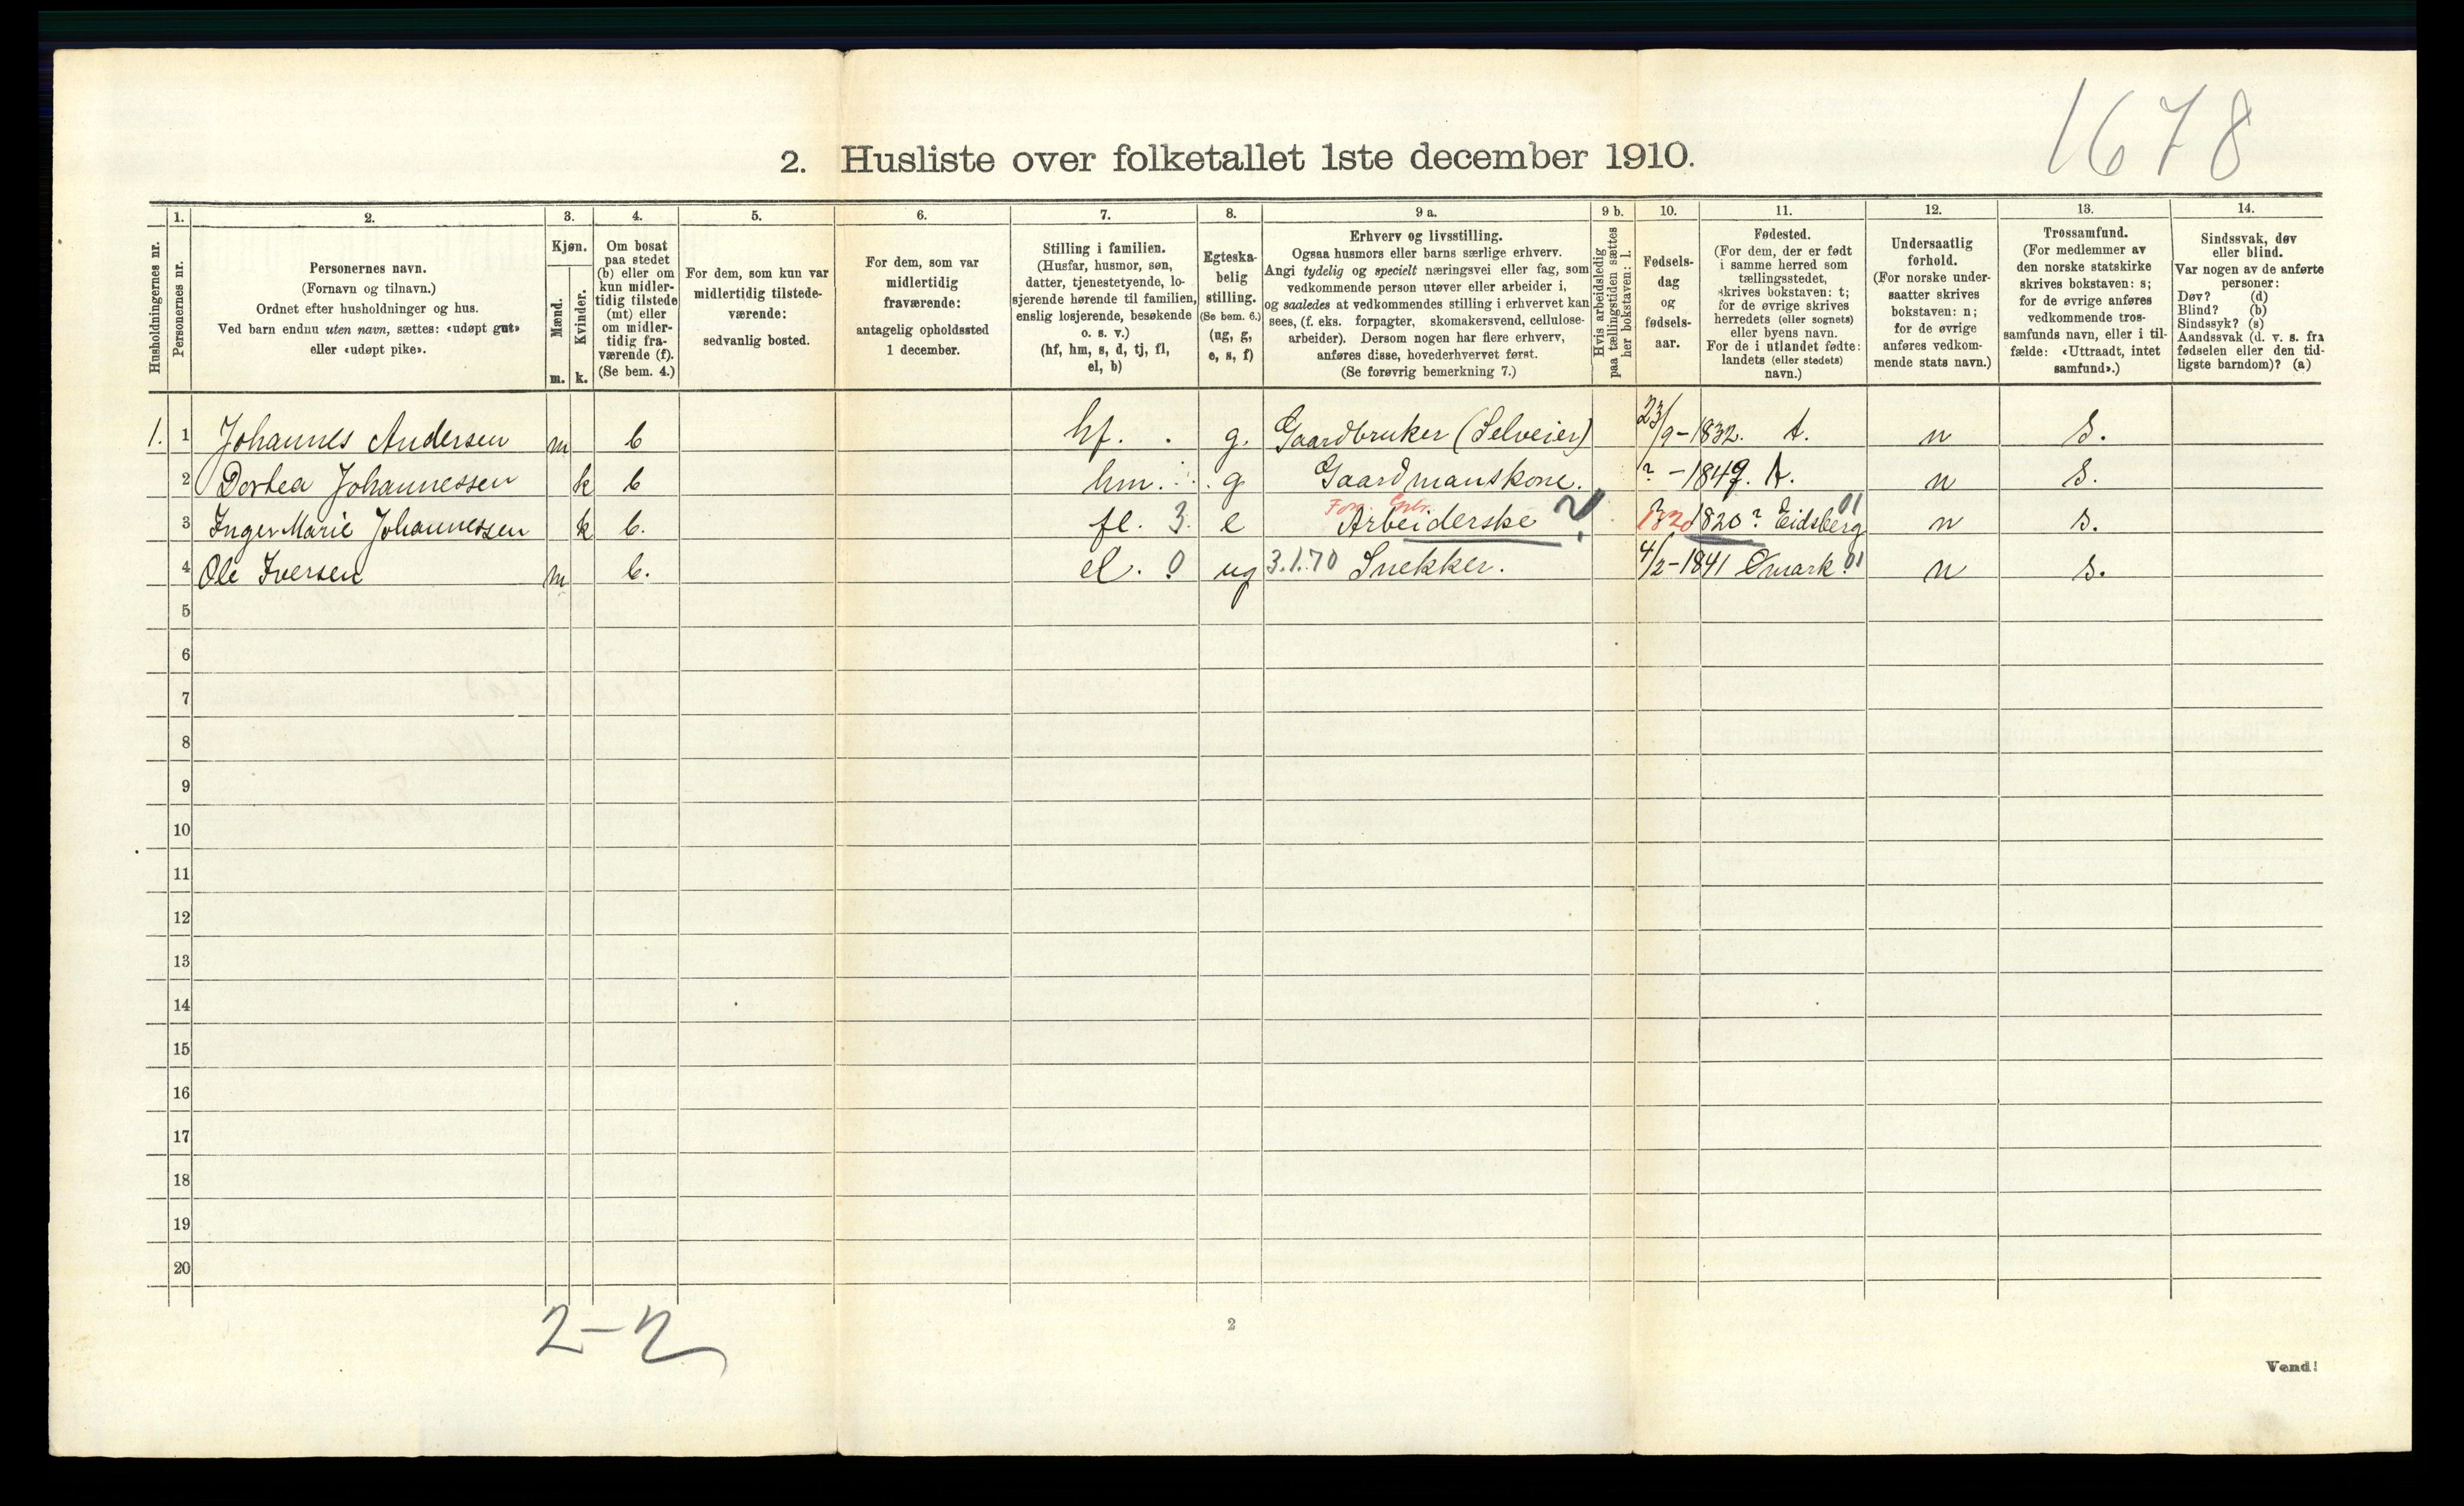 1678
2. Husliste over folketallet 1ste december 1910.
Husholdningernes nr.
1.
Personernes nr.
2.
Personernes navn.
(Fornavn og tilnavn.)
Ordnet efter husholdninger og hus.
Ved barn endnu uten navn, sættes: «udøpt gut»
eller «udøpt pike».
3.
Kjøn.
Mænd.
m.
Kvinder.
k.
4.
Om bosat
paa stedet
(b) eller om
kun midler-
tidig tilstede
(mt) eller
om midler-
tidig fra-
værende (f).
(Se bem. 4.)
5.
For dem, som kun var
midlertidig tilstede-
værende:
sedvanlig bosted.
6.
For dem, som var
midlertidig
fraværende:
antagelig opholdssted
1 december.
7.
Stilling i familien.
(Husfar, husmor, søn,
datter, tjenestetyende, lo-
sjerende hørende til familien,
enslig losjerende, besøkende
o. s. v.)
(hf, hm, s, d, tj, fl,
el, b)
8.
Egteska-
belig
stilling.
(Se bem. 6.)
(ug, g,
e, s, f)
9 a.
Erhverv og livsstilling.
Ogsaa husmors eller barns særlige erhverv.
Angi tydelig og specielt næringsvei eller fag, som
vedkommende person utøver eller arbeider i,
og saaledes at vedkommendes stilling i erhvervet kan
sees, (f. eks. forpagter, skomakersvend, cellulose-
arbeider). Dersom nogen har flere erhverv,
anføres disse, hovederhvervet først.
(Se forøvrig bemerkning 7.)
9 b.
Hvis arbeidsledig
paa tællingstiden sættes
her bokstaven: l.
10.
Fødsels-
dag
og
fødsels-
aar.
11.
Fødested.
(For dem, der er født
i samme herred som
tællingsstedet,
skrives bokstaven: t;
for de øvrige skrives
herredets (eller sognets)
eller byens navn.
For de i utlandet fødte:
landets (eller stedets)
navn.)
12.
Undersaatlig
forhold.
(For norske under-
saatter skrives
bokstaven: n;
for de øvrige
anføres vedkom-
mende stats navn.)
13.
Trossamfund.
(For medlemmer av
den norske statskirke
skrives bokstaven: s;
for de øvrige anføres
vedkommende tros-
samfunds navn, eller i til-
fælde: «Uttraadt, intet
samfund».)
14.
Sindssvak, døv
eller blind.
Var nogen av de anførte
personer:
Døv? (d)
Blind? (b)
Sindssyk? (s)
Aandssvak (d. v. s. fra
fødselen eller den tid-
ligste barndom)? (a)
1. 1 Johannes Andersen m b hf. g. Gaardbruker (Selveier) 23/9-1832. t. n s.
2 Dortea Johannessen k b hm. g Gaardmanskone. ?-1849. t. n s.
3 Inger Marie Johannessen k b. fl. 3 e Arbeiderske ? 1820? Eidsberg 01 n s.
4 Ole Iversen m b. el. 0 ug 3.1.70 Snekker. 4/2-1841 Ømark 01 n s.
5
6
7
8
9
10
11
12
13
14
15
16
17
18
19
20
2-2
2
Vend!